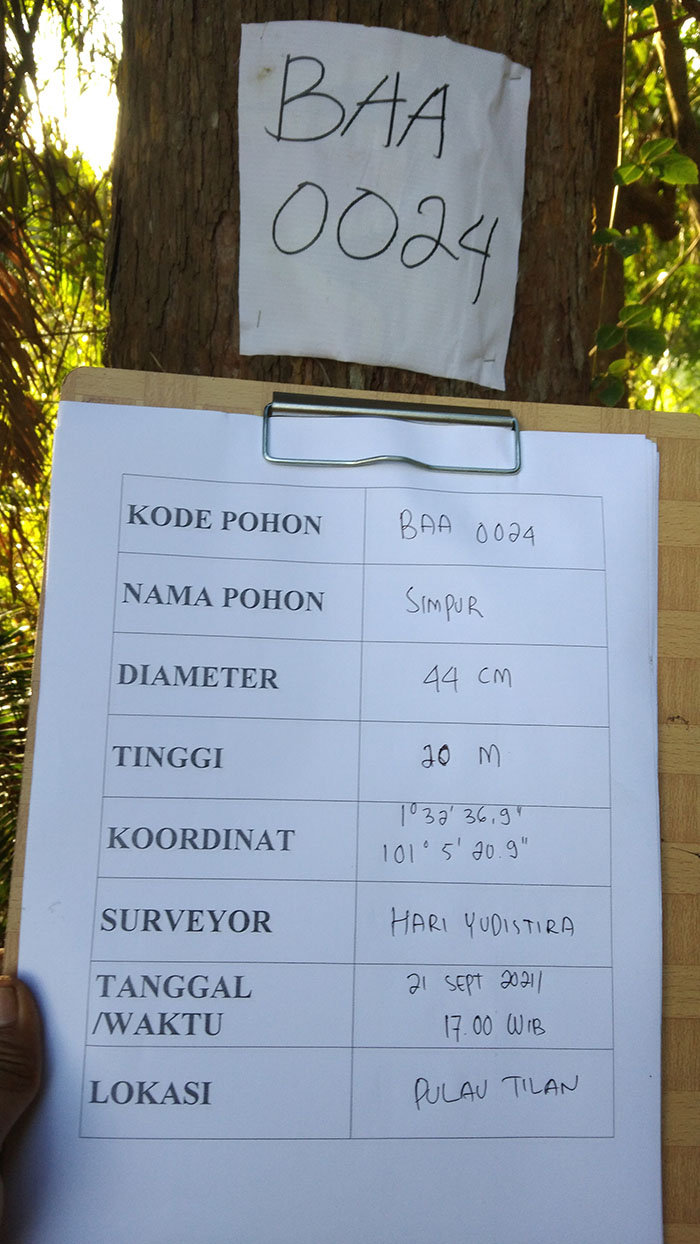 BAA
0024
KODE POHON BAA 0024
NAMA POHON SIMPUR
DIAMETER 44 CM
TINGGI 20 M
KOORDINAT 1° 32' 36,9"
101° 5' 20.9"
SURVEYOR HARI YUDISTIRA
TANGGAL 21 SEPT 2021/
/WAKTU 17.00 WIB
LOKASI PULAU TILAN